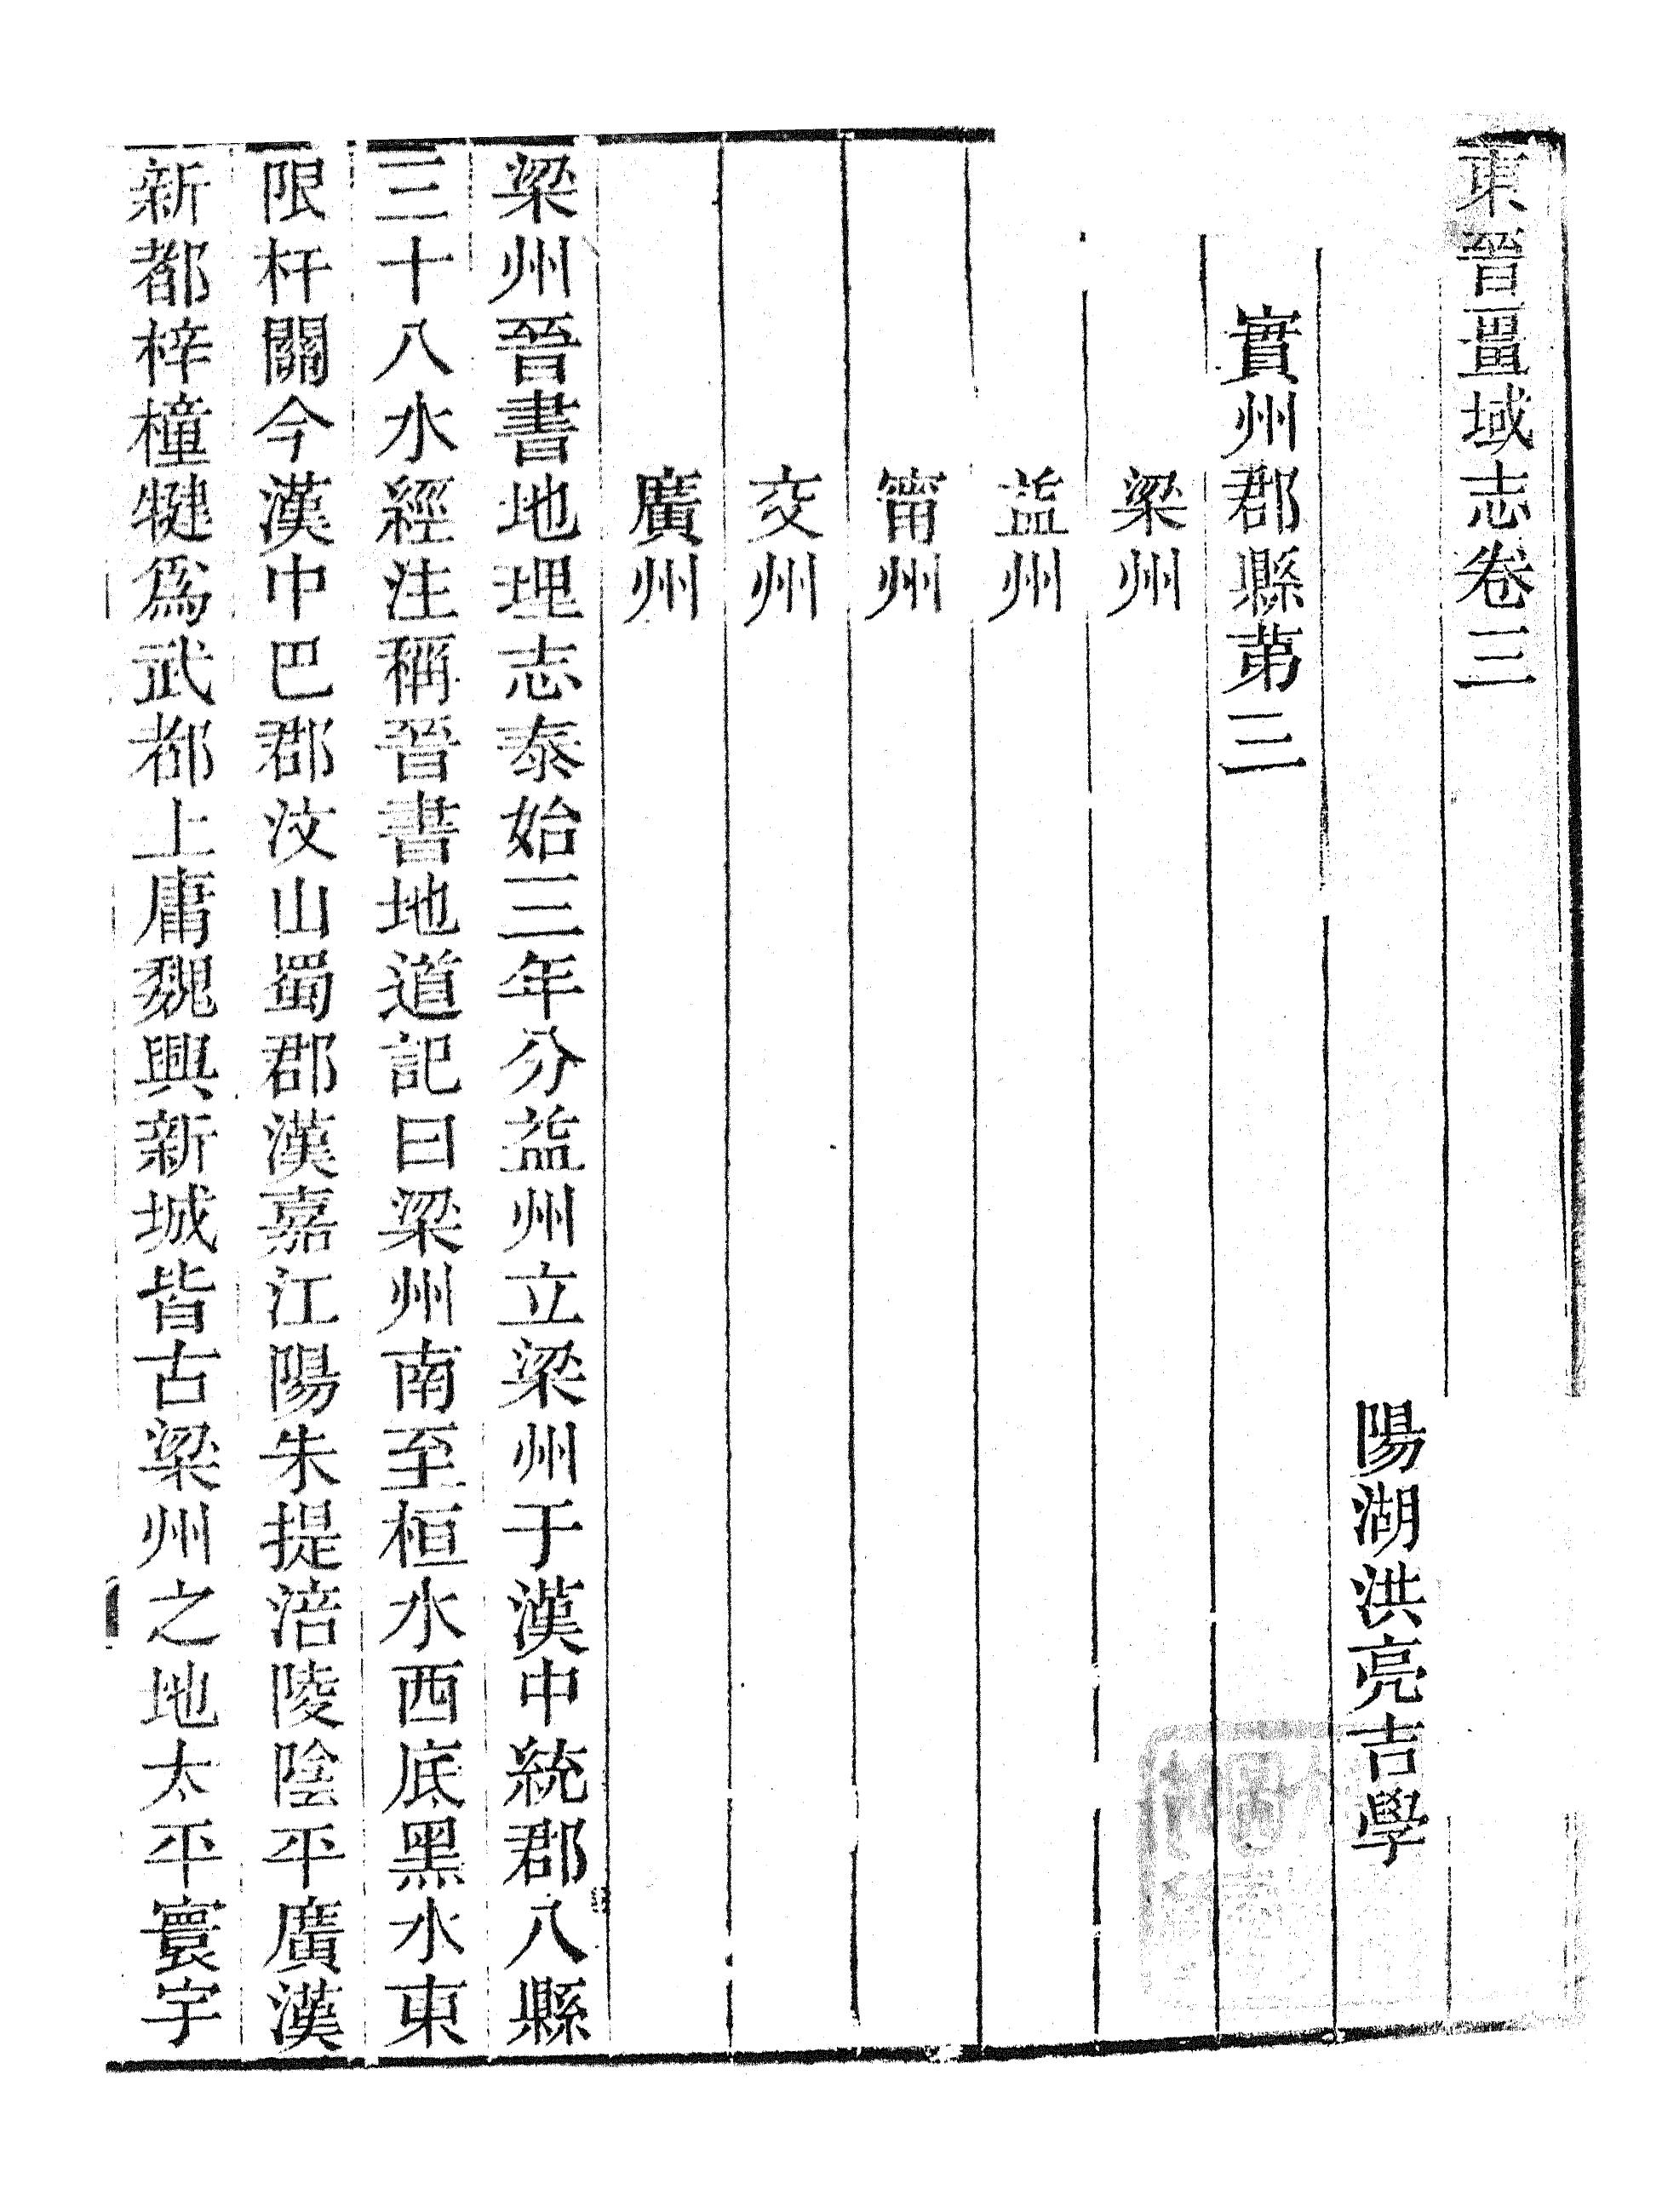 東晉畺域志卷三
陽湖洪亮吉學
實州郡縣第三
梁州
益州
甯州
交州
廣州
梁州晉書地理志泰始三年分益州立梁州于漢中統郡八縣
三十八水經注稱晉書地道記曰梁州南至桓水西底黑水東
限杆關今漢中巴郡汶山蜀郡漢嘉江陽朱提涪陵陰平廣漢
新都梓橦犍爲武都上庸魏興新城皆古梁州之地太平寰宇